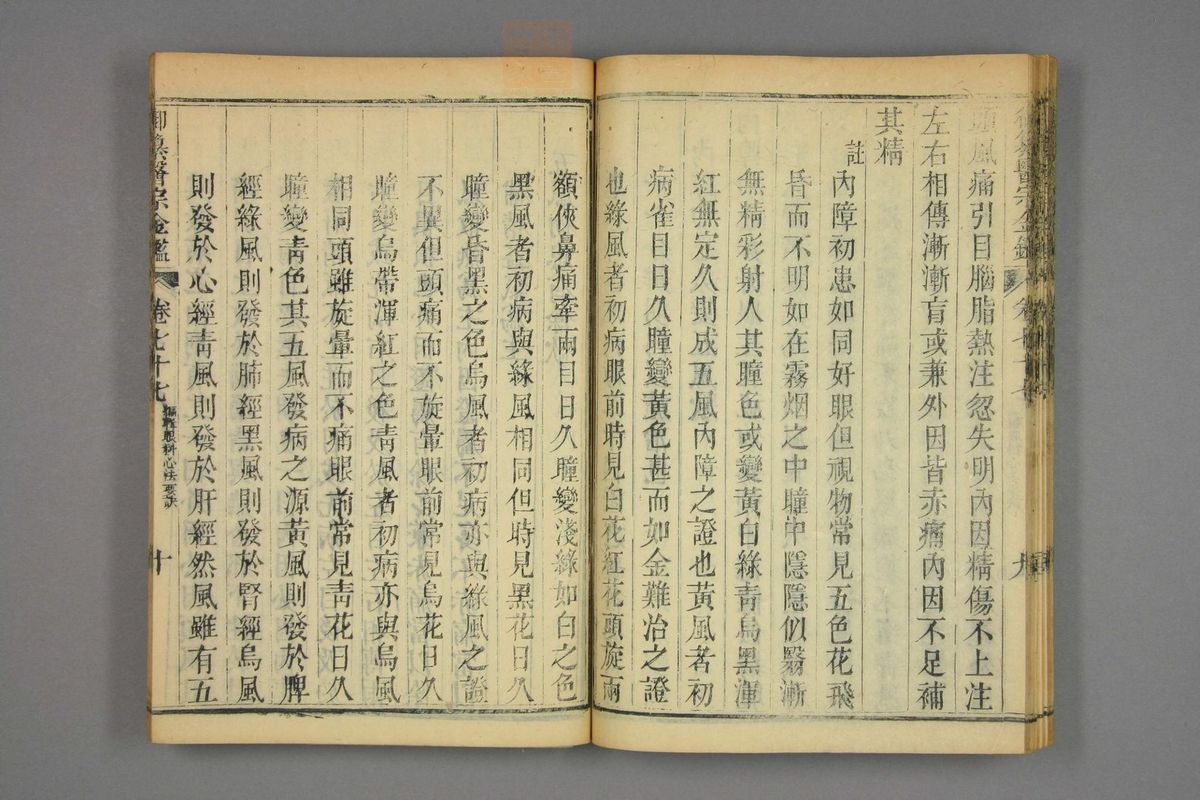 頭風痛引目腦脂熱注忽失明內因精傷不上注
左右相傳漸漸盲或兼外因皆赤痛內因不足補
其精
註內障初患如同好眼但視物常見五色花飛
昏而不明如在霧烟之中瞳中隱隱似翳漸
無精彩射人其瞳色或變黃白綠青烏黑渾
紅無定久則成五風內障之證也黃風者初
病雀目日久瞳變黃色甚而如金難治之證
也綠風者初病眼前時見白花紅花頭旋兩
額俠鼻痛牽兩目日久瞳變淺綠如白之色
黑風者初病與綠風相同但時見黑花日久
瞳變昏黑之色烏風者初病亦與綠風之證
不異但頭痛而不旋暈眼前常見烏花日久
瞳變烏帶渾紅之色青風者初病亦與烏風
相同頭雖旋暈而不痛眼前常見青花日久
瞳變青色其五風發病之源黃風則發於脾
經綠風則發於肺經黑風則發於腎經烏風
則發於心經青風則發於肝經然風雖有五
御纂醫宗金鑑 卷七十七 編輯眼科心法要訣 十